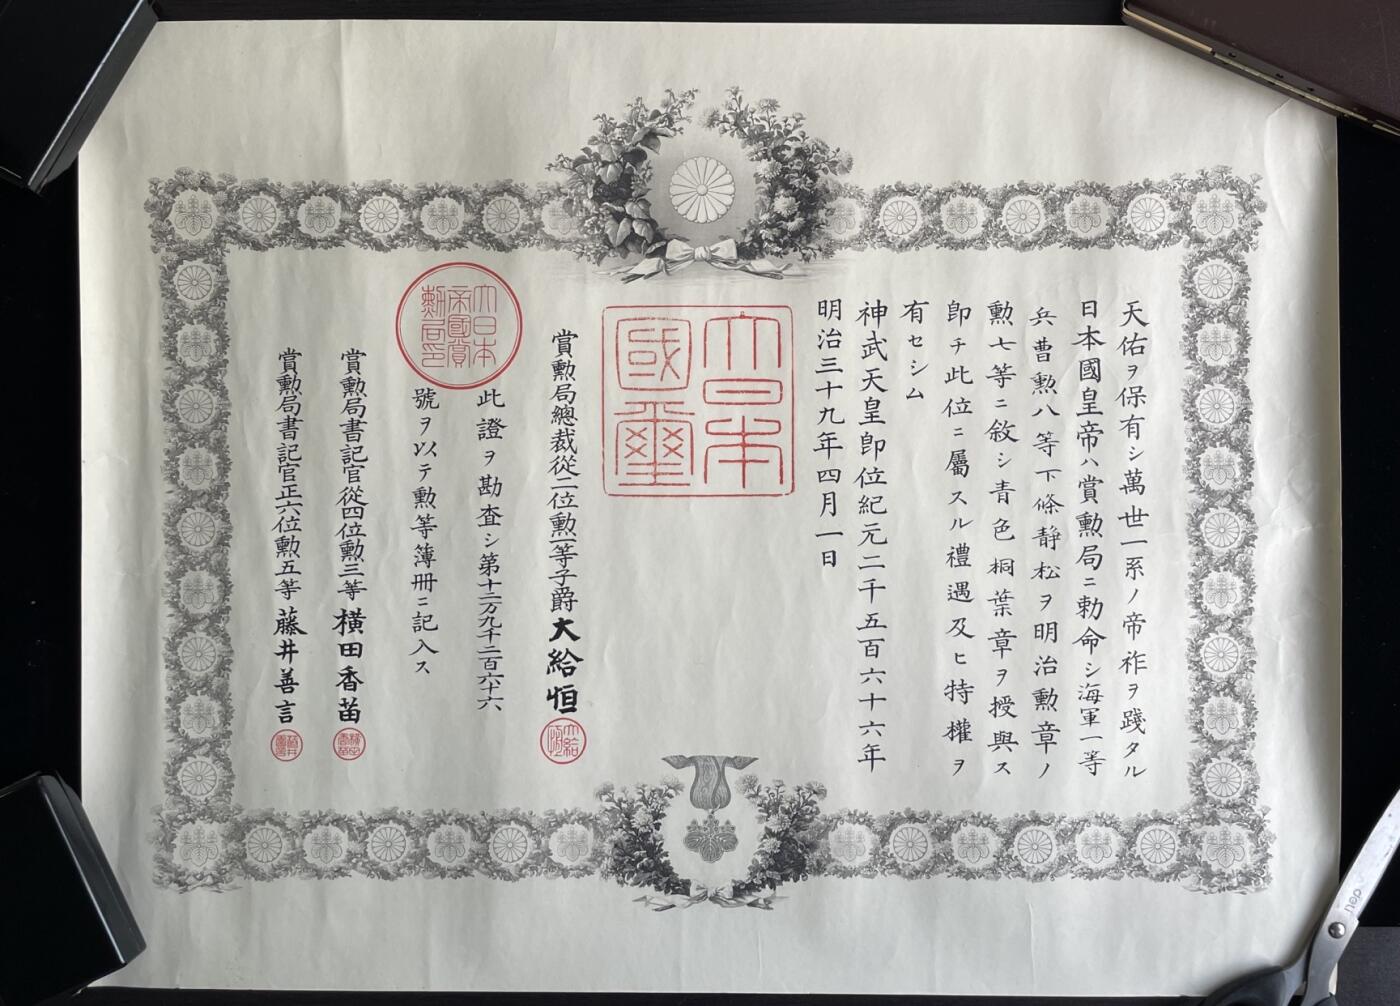 天佑ヲ保有シ萬世一系ノ帝祚ヲ踐タル
日本國皇帝ハ賞勲局ニ勅命シ海軍一等
兵曹勲八等下條静松ヲ明治勲章ノ
勲七等ニ敘シ青色桐葉章ヲ授與ス
卽チ此位ニ屬スル禮遇及ヒ特權ヲ
有セシム
神武天皇卽位紀元二千五百六十六年
明治三十九年四月一日
大日本
國璽
賞勲局總裁從二位勲一等子爵大給恒
大給恒
此證ヲ勘査シ第十二万九千二百六十六
號ヲ以テ勲等簿冊ニ記入ス
大日本
帝國賞
勲局印
賞勲局書記官從四位勲三等横田香苗
横田香苗
賞勲局書記官正六位勲五等藤井善言
nop